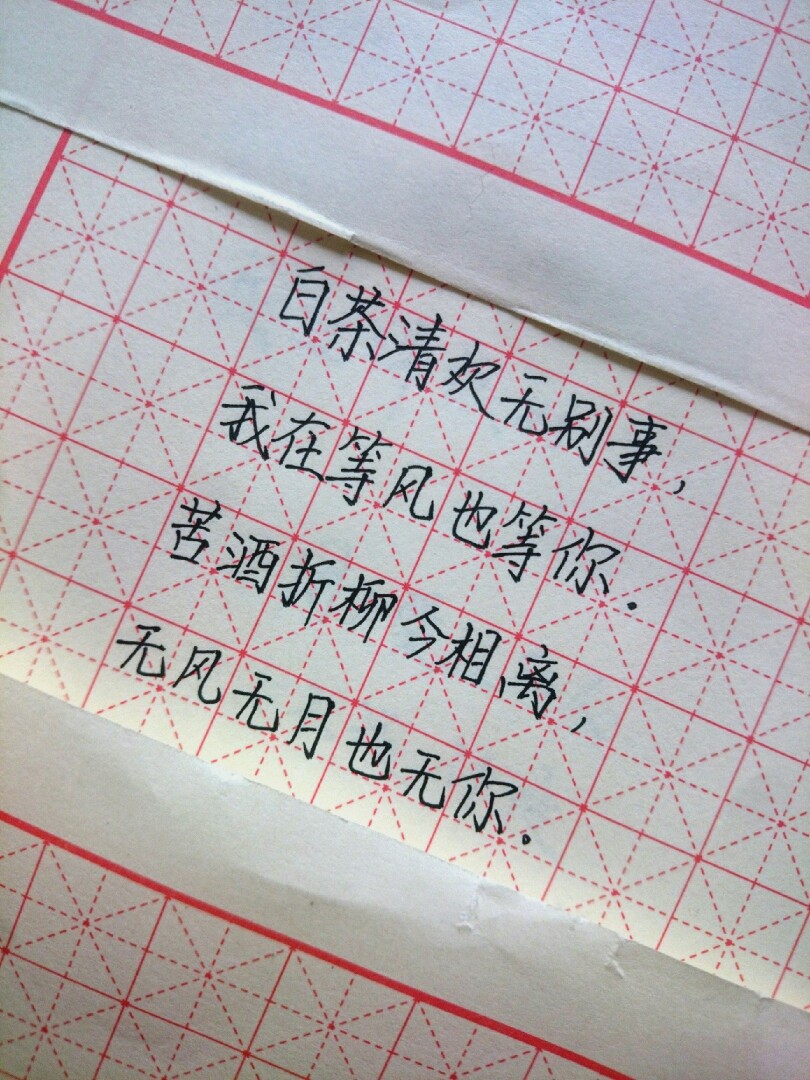 白茶清欢无别事,
我在等风也等你.
苦酒折柳今相离,
无风无月也无你.